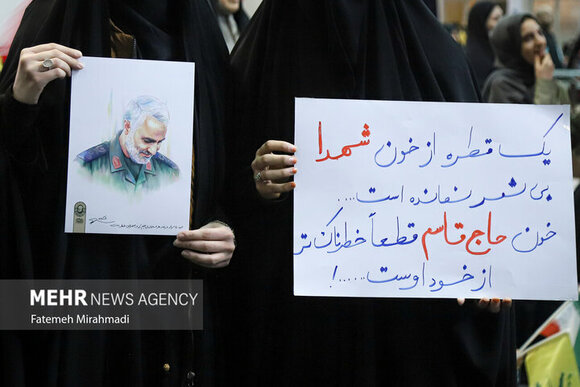 یک قطره از خون شهدا
بی ثمر نمانده است....
خون حاج قاسم قطعاً خطرناک تر
از خود اوست.....!
MEHR NEWS AGENCY
Fatemeh Mirahmadi